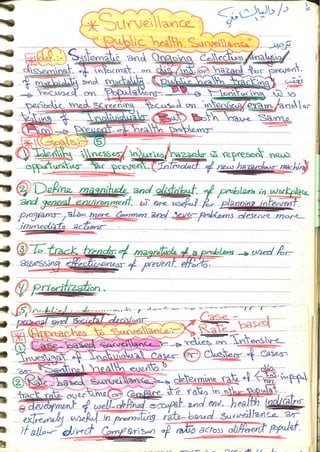 Surveillance
"Public health Surveillance"
def:- Systematic and Ongoing Collection, analysis
disseminat. of informat. on dis/inj or hazard for prevent.
of morbidity and mortality. Public health tracking
is focused on Populations Monitoring is
periodic med. screening focused on interview/exam/and/or
testing of Individuals But both have Same
Aim → Prevent of health problems
* Goals: 5
1) Identify illnesses/injuries/hazards represent new
opportunities for prevent. (Introduct of new hazardous machine)
2) Define magnitude and distribut. of problem in workplace
and general environment. useful for planning intervent
programs, also more common and sever problems deserve more
immediate actions
3) To track trends of magnitude of a problem → used for
assessing effectiveness of prevent. efforts.
4) prioritization.
5)
personal and societal decisions
* Approaches to Surveillance:- Case - Rate - based
1) Case-based surveillance → relies on Intensive
Investigat of Individual cases or Clusters of cases
as "Sentinel health events"
2) Rate-based surveillance → determine rate of dis/inj in popul
track rate over time/or compare rates in other populat
development of well-defined occupat. and env. health Indicator
extremely useful in promoting rate-based surveillance as
it allow direct Comparison of ratio across different populat.